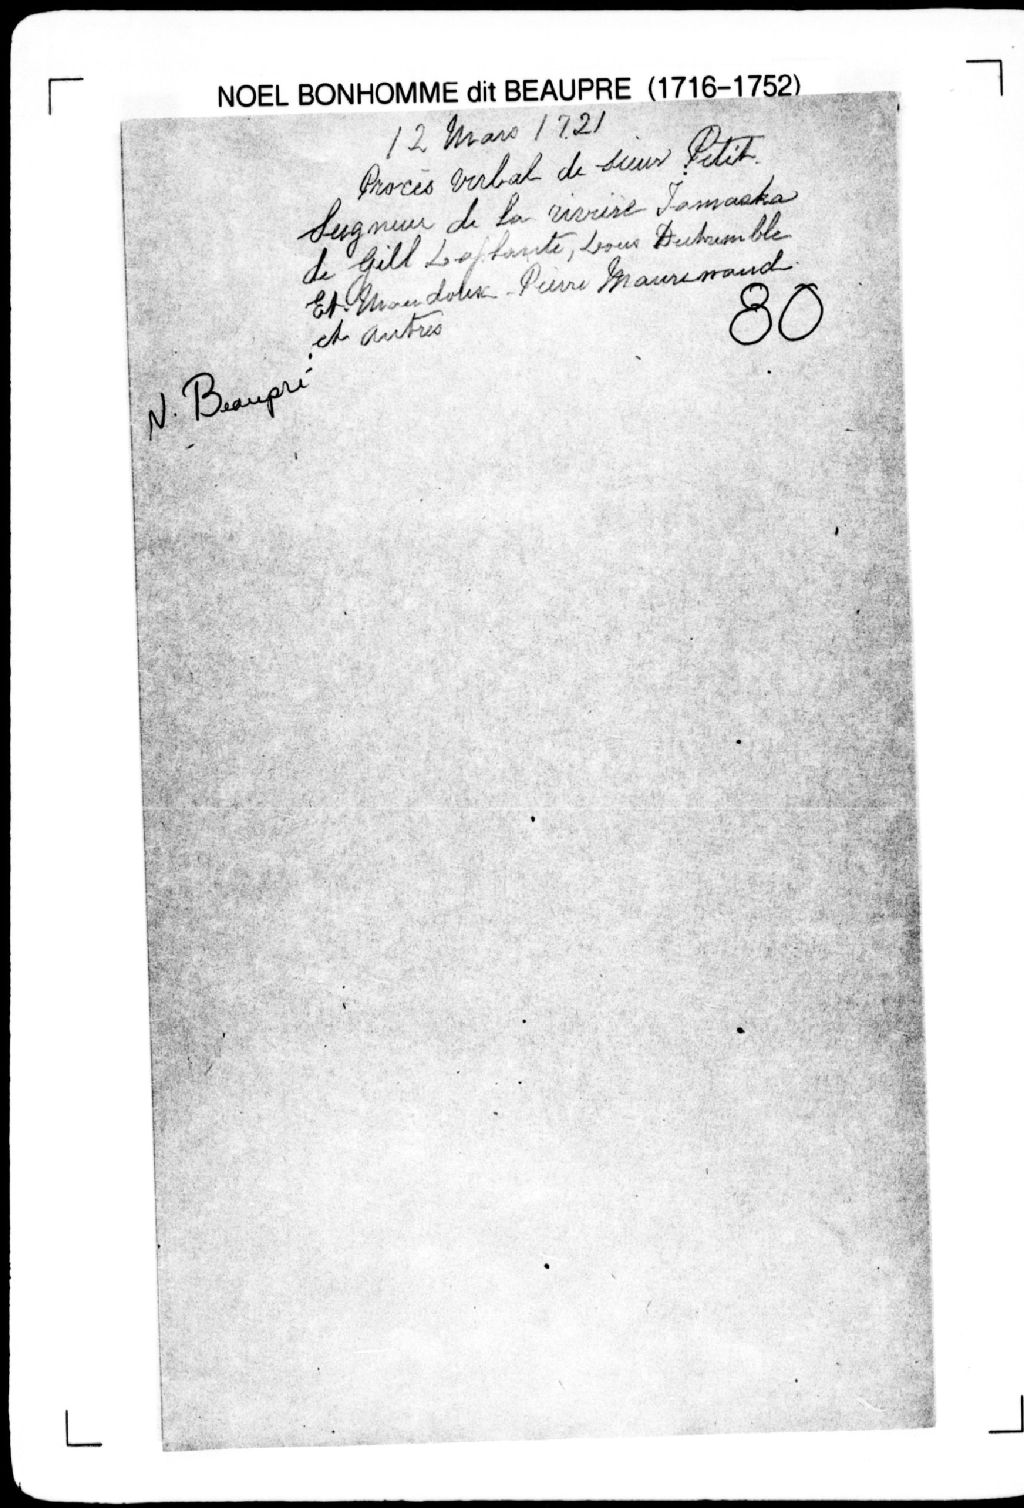 NOEL BONHOMME dit BEAUPRE (1716-1752)
12 Mars 1721
Procès verbal de sieur Petit
Seigneur de la rivière Iamaska
de Gill Laplante, Louis Dutremble
Et. Mandoux Pierre Maurenaud
et autres
80
N. Beaupré